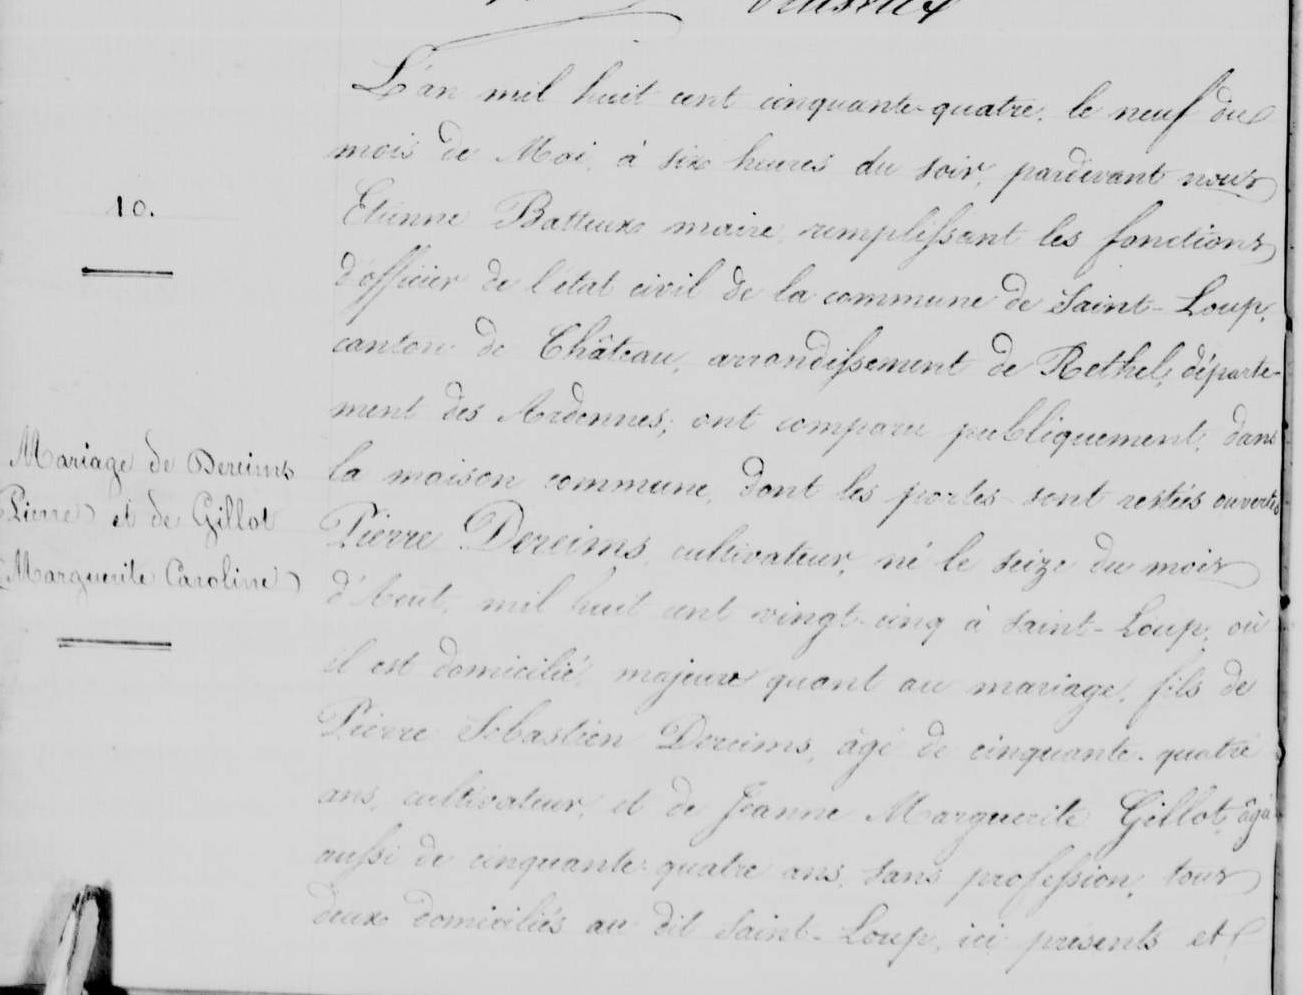 10.
Mariage de Dereims
Pierre et de Gillot
Marguerite Caroline
L'an mil huit cent cinquante-quatre, le neuf du
mois de Mai, à six heures du soir, pardevant nous
Etienne Batteux maire, remplissant les fonctions
d'officier de l'état civil de la commune de Saint-Loup,
canton de Château, arrondissement de Rethel, départe-
ment des Ardennes; ont comparu publiquement, dans
la maison commune, dont les portes sont restées ouvertes
Pierre Dereims, cultivateur, né le seize du mois
d'Aout, mil huit cent vingt-cinq à Saint-Loup, où
il est domicilié, majeure quant au mariage, fils de
Pierre Sebastien Dereims, âgé de cinquante-quatre
ans, cultivateur, et de Jeanne Marguerite Gillot, âgée
aussi de cinquante-quatre ans, sans profession, tous
deux domiciliés au dit Saint-Loup, ici présents et